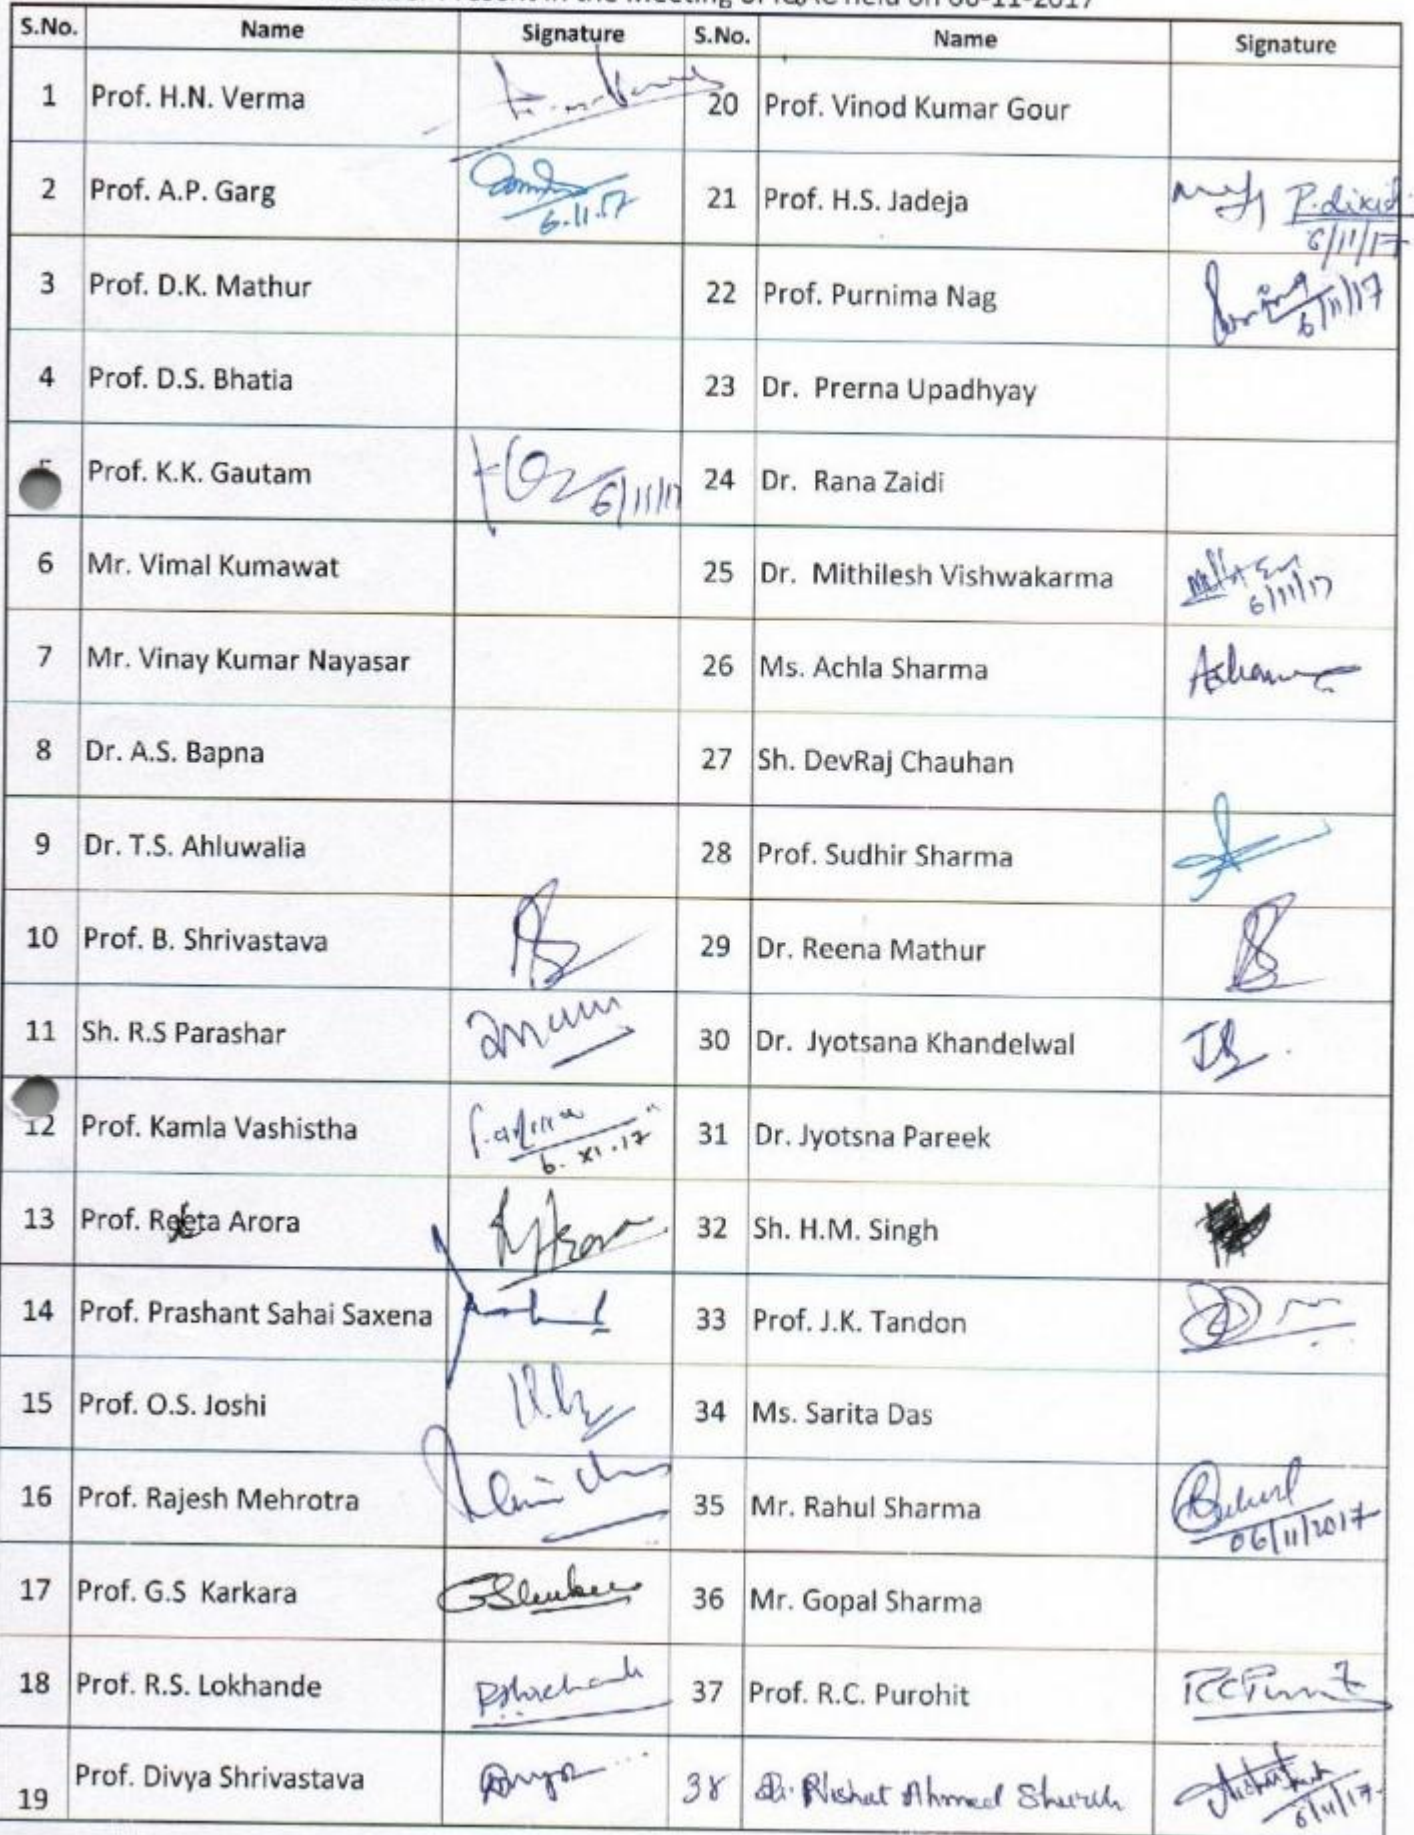 Meeting of IQAC held on 06-11-2017
S.No. Name Signature S.No. Name Signature
1 Prof. H.N. Verma 20 Prof. Vinod Kumar Gour
2 Prof. A.P. Garg 6.11.17 21 Prof. H.S. Jadeja P. dixit 6/11/17
3 Prof. D.K. Mathur 22 Prof. Purnima Nag 6/11/17
4 Prof. D.S. Bhatia 23 Dr. Prerna Upadhyay
5 Prof. K.K. Gautam 6/11/17 24 Dr. Rana Zaidi
6 Mr. Vimal Kumawat 25 Dr. Mithilesh Vishwakarma 6/11/17
7 Mr. Vinay Kumar Nayasar 26 Ms. Achla Sharma
8 Dr. A.S. Bapna 27 Sh. DevRaj Chauhan
9 Dr. T.S. Ahluwalia 28 Prof. Sudhir Sharma
10 Prof. B. Shrivastava 29 Dr. Reena Mathur
11 Sh. R.S Parashar 30 Dr. Jyotsana Khandelwal
12 Prof. Kamla Vashistha 6.XI.17 31 Dr. Jyotsna Pareek
13 Prof. Reeta Arora 32 Sh. H.M. Singh
14 Prof. Prashant Sahai Saxena 33 Prof. J.K. Tandon
15 Prof. O.S. Joshi 34 Ms. Sarita Das
16 Prof. Rajesh Mehrotra 35 Mr. Rahul Sharma 06/11/2017
17 Prof. G.S Karkara 36 Mr. Gopal Sharma
18 Prof. R.S. Lokhande 37 Prof. R.C. Purohit
19 Prof. Divya Shrivastava 38 Dr. Nishat Ahmed Sheikh 6/11/17